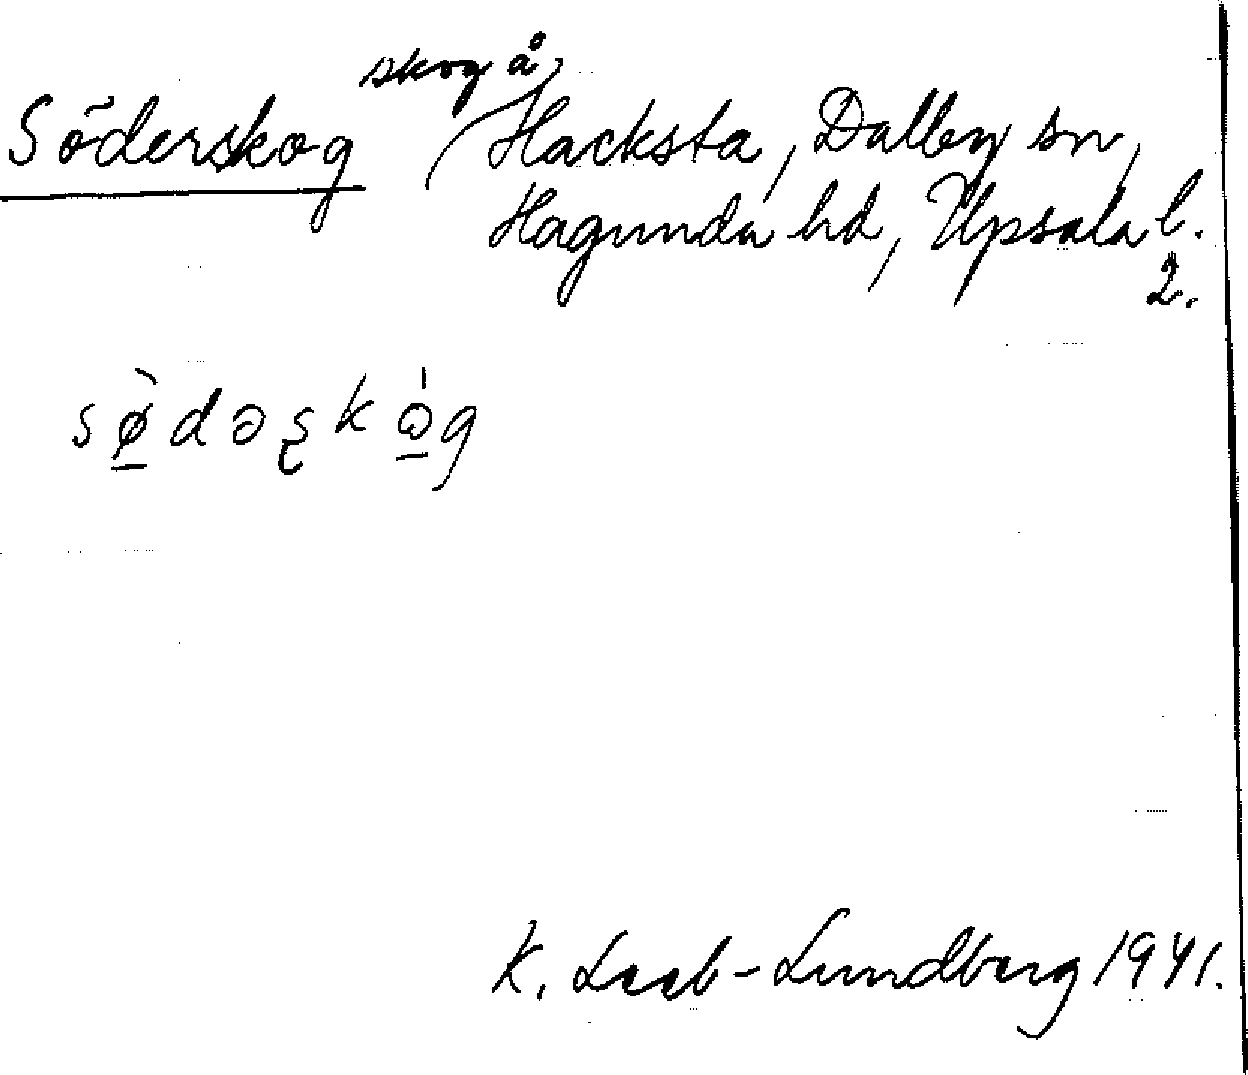 skog å
Söderskog Hacksta, Dalby sn,
Hagunda hd, Upsala l.
2.
sø̠̀dəʂkɷ̠̍g
K. Leeb-Lundberg 1941.